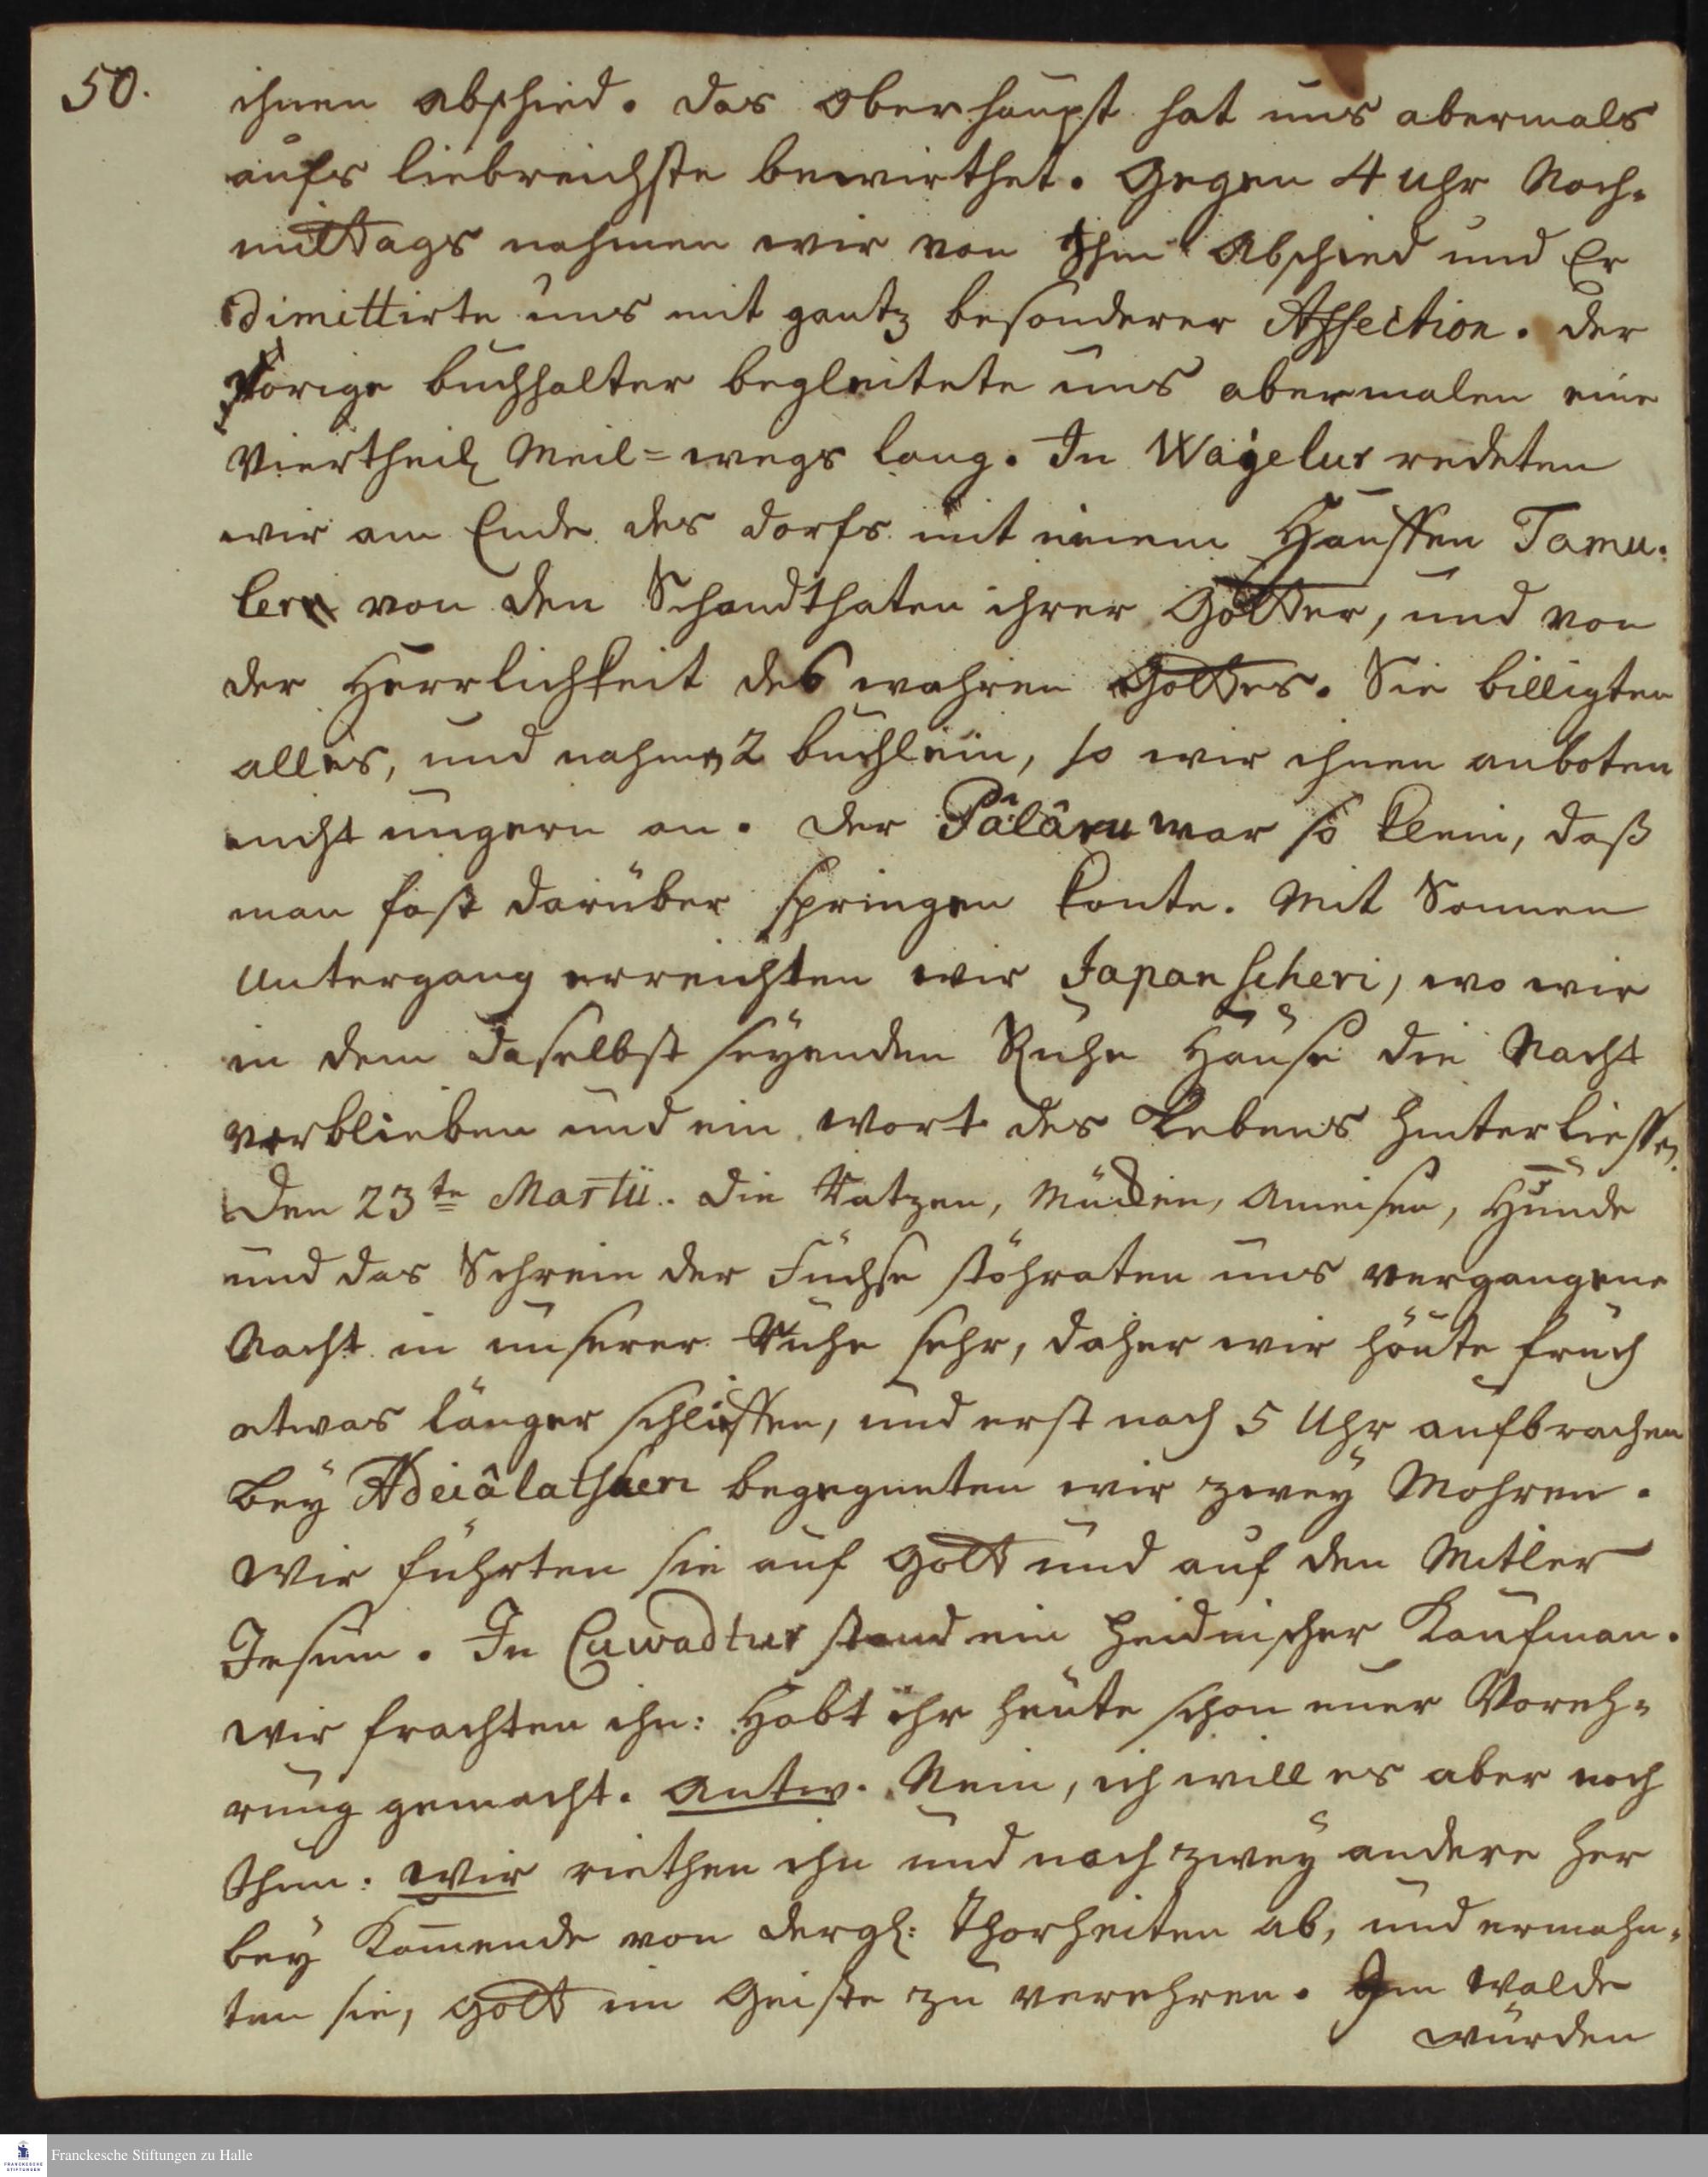 50.
ihnen Abschied. das Oberhaupt hat uns abermals
aufs liebreichste bewirthet. Gegen 4 Uhr Nach-
mittags nahmen wir von Ihm Abschied und Er
dimittirte uns mit gantz besonderer Affection. der
Vorige buchhalter begleitete uns abermalen eine
Viertheil Meil=wegs lang. In Wagelur redeten
wir am Ende des dorfs mit einem Hauffen Tamu-
lern von den Schandthaten ihrer Götter, und von
der Herrlichkeit des wahren Gottes. Sie billigten
alles, und nahmen 2 buchlein, so wir ihnen anboten
nicht ungern an. der Pâlâru war so klein, daß
man fast darüber springen konte. Mit Sonnen
Untergang erreichten wir Japanscheri, wo wir
in dem daselbst seÿenden Ruhe Hause die Nacht
verblieben und ein Wort des Lebens hinterliessen.
Den 23te Martii. Die Ratzen, Mücken, Ameisen, Hunde
und das Schrein der Füchse stöhreten uns vergangene
Nacht in unserer Ruhe sehr, daher wir heute früh
etwas länger schlieffen, und erst nach 5 Uhr aufbrachen
Beÿ begegneten wir zweÿ Mohren.
Wir führten sie auf Gott und auf den Mitler
Jesum. In Cuwadtur stand ein heidnischer Kaufman.
wir frachten ihn: Habt ihr heute schon euer Vereh-
rung gemacht. Antw. Nein, ich will es aber noch
thun: Wir riethen ihn und noch zweÿ andere her
beÿ Komende von dergl: Thorheiten ab, und ermahn-
ten sie, Gott im Geiste zu verehren. Im Walde
wurden
FRANCKESCHE STIFTUNGEN
Franckesche Stiftungen zu Halle